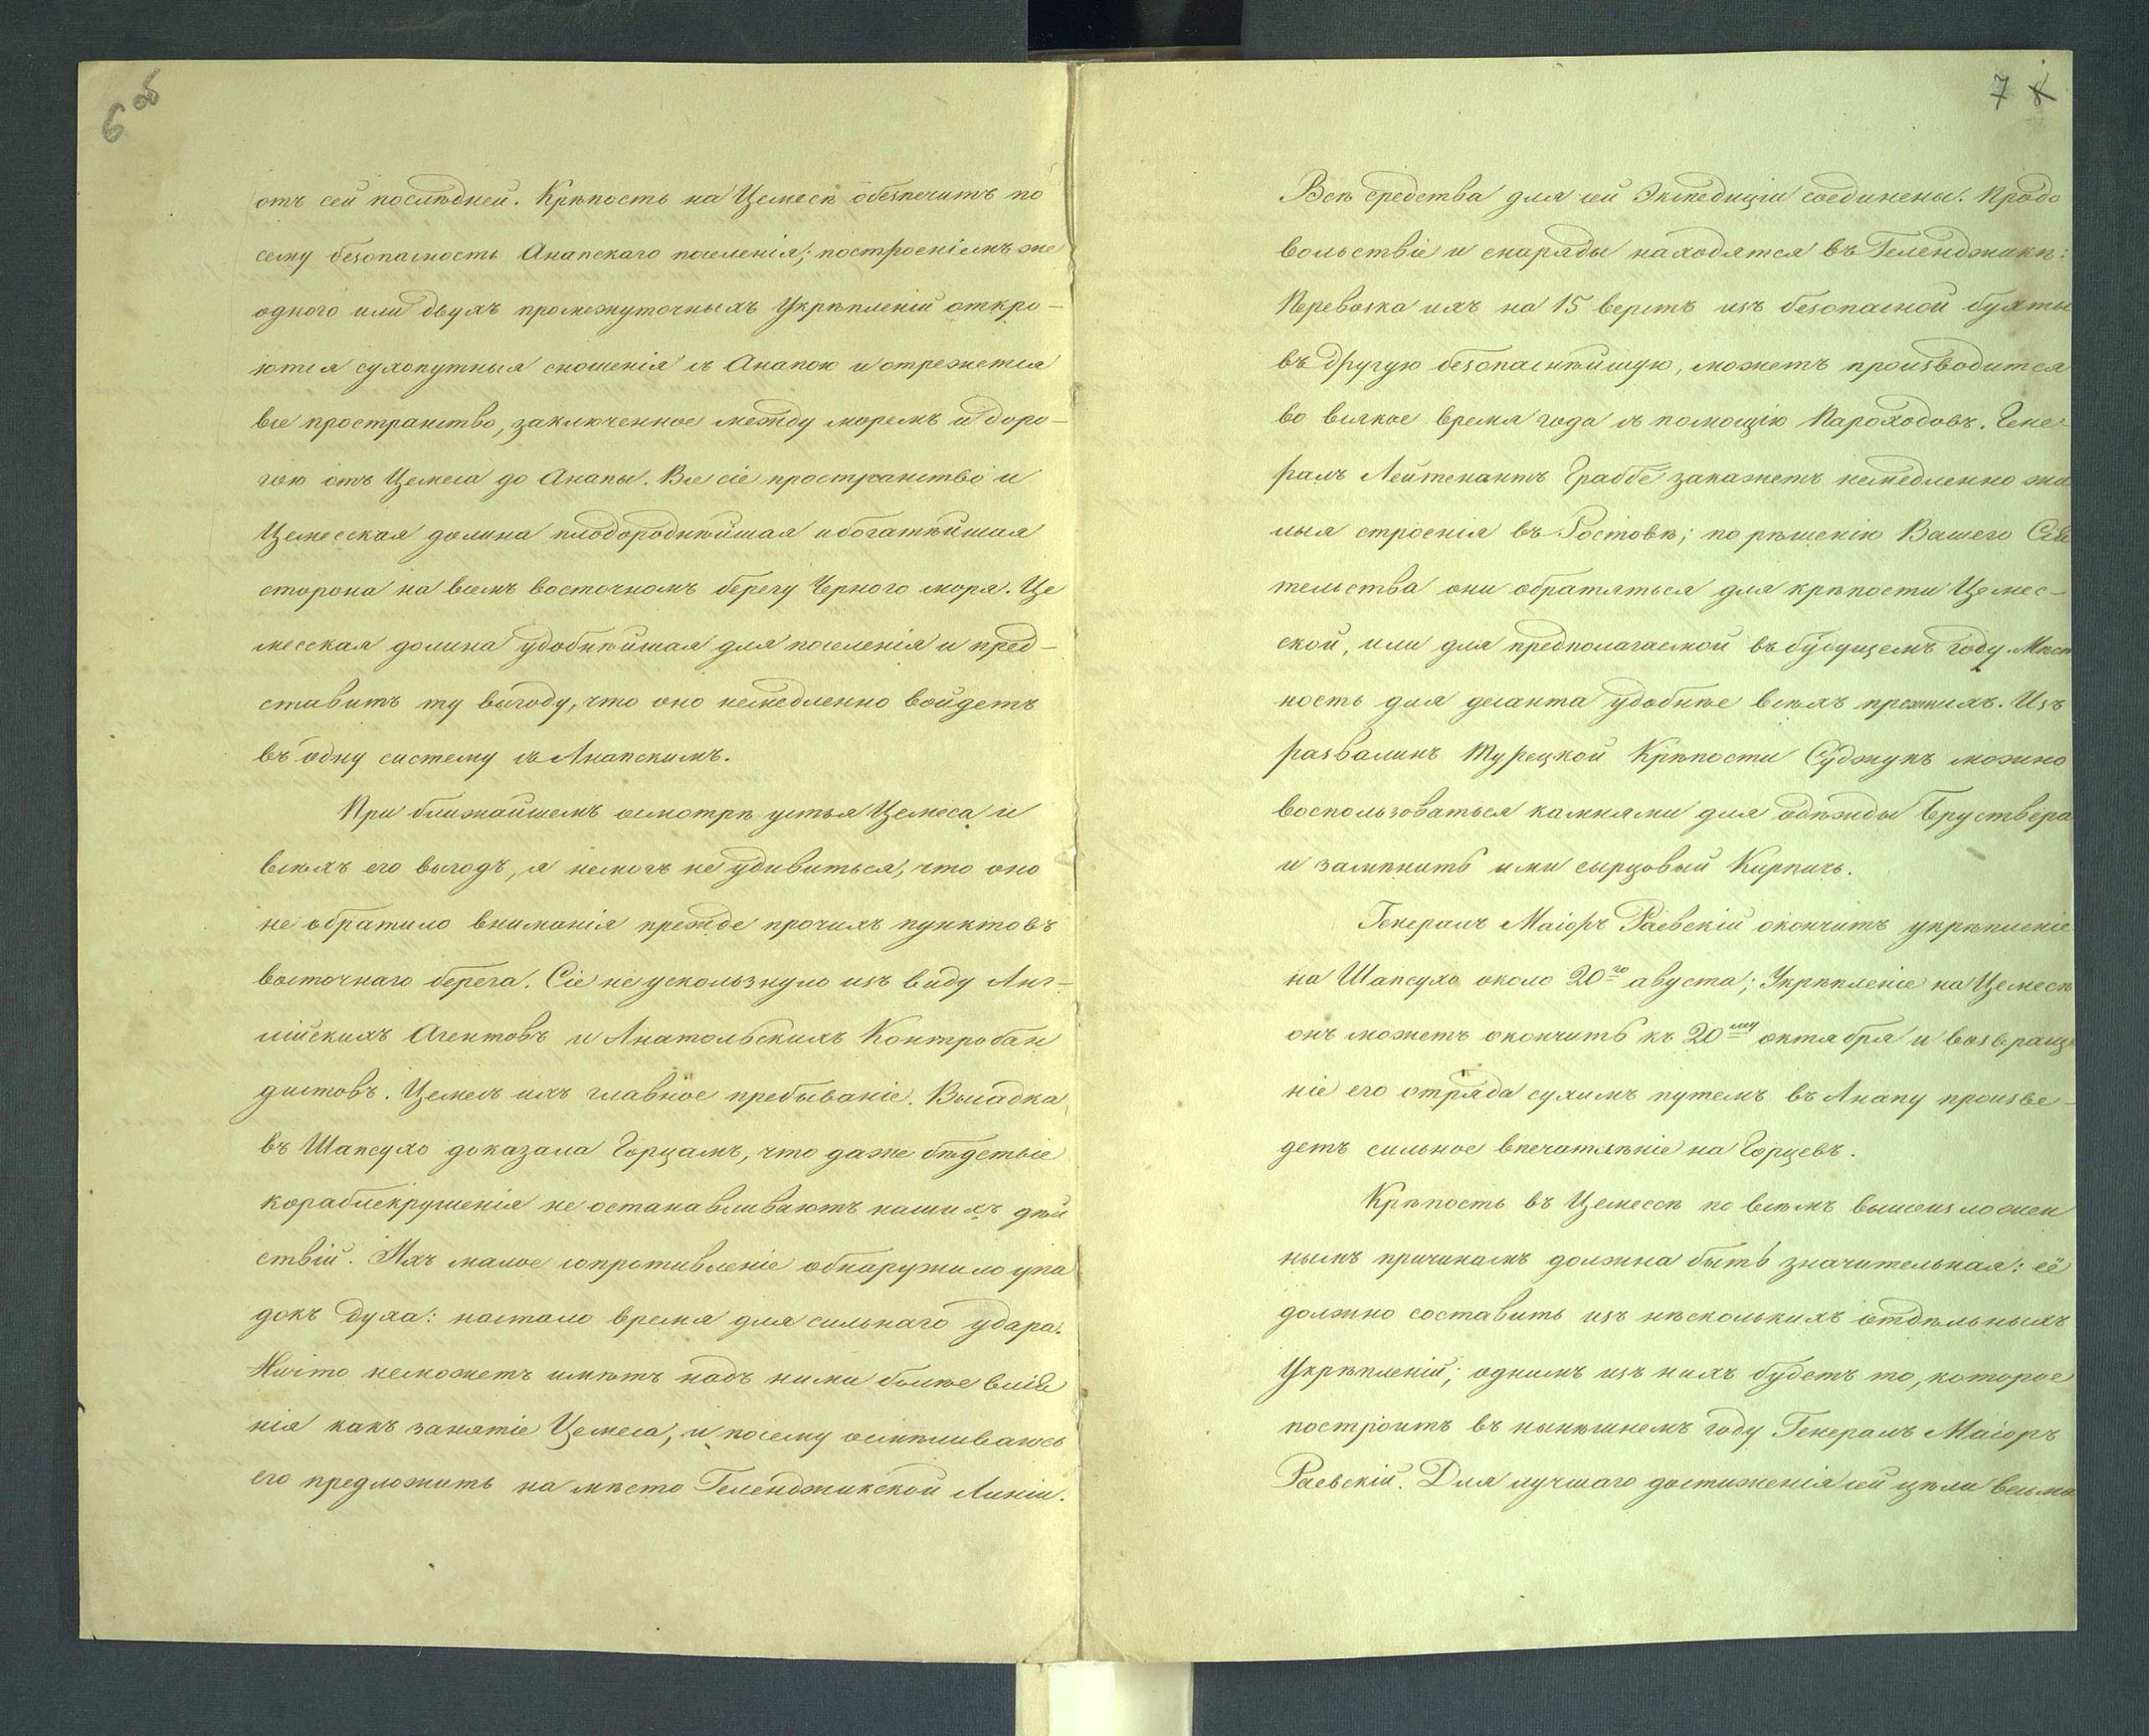 6 об
отъ сей послѣдней. Крѣпость на Цемесѣ обезпечитъ по
сему безопасность Анапскаго поселенія; построеніемъ же
одного или двухъ промежуточныхъ Укрѣпленій откро-
ются сухопутныя сношенія съ Анапою и отрежется
все пространство, заключенное между моремъ и доро-
гою отъ Цемеса до Анапы. Все сіе пространство и
Цемесская долина плодороднѣйшая и богатѣйшая
сторона на всемъ восточномъ берегу Чернаго моря. Це
месская долина удобнѣйшая для поселенія и пред-
ставитъ ту выгоду, что оно немедленно войдетъ
въ одну систему съ Анапскимъ.
При ближайшемъ осмотрѣ устья Цемеса и
всѣхъ его выгодъ, я немогъ не удивиться, что оно
не обратило вниманія прежде прочихъ пунктовъ
восточнаго берега. Сіе не ускользнуло изъ виду Анг-
лійскихъ Агентовъ и Анатольскихъ Контробан
дистовъ. Цемесъ ихъ главное пребываніе. Высадка
въ Шапсухо доказала Горцамъ, что даже бѣдствіе
кораблекрушенія не останавливаютъ нашихъ дѣй
ствій. Ихъ малое сопротивленіе обнаружило упа
докъ духа: настало время для сильнаго удара.
Ничто неможетъ имѣть надъ ними болѣе влія
нія какъ занятіе Цемеса, и посему осмѣливаюсь
его предложить на мѣсто Геленджикской Линіи.
7 8
Всѣ средства для сей Экспедиціи соединены. Продо
вольствіе и снаряды находятся въ Геленджикѣ:
Перевозка ихъ на 15 верстъ изъ безопасной бухты
въ другую безопаснѣйшую, можетъ производится
во всякое время года съ помощію Пароходовъ. Гене-
ралъ Лейтенантъ Граббе закажетъ немедленно жи
лыя строенія въ Ростовѣ; по рѣшенію Вашего Сія
тельства они обратяться для крѣпости Цемес-
ской, или для предполагаемой въ будущемъ году. Мѣст
ность для десанта удобнѣе всѣхъ прежнихъ. Изъ
развалинъ Турецкой Крѣпости Суджукъ можно
воспользоваться камнями для одѣжды Бруствера
и замѣнить ими сырцовый Кирпичъ.
Генералъ Маіоръ Раевскій окончитъ укрѣпленіе
на Шапсухо около 20го августа; Укрѣпленіе на Цемесѣ
онъ можетъ окончить къ 20му октября и возвраще
ніе его отряда сухимъ путемъ въ Анапу произве-
детъ сильное впечатлѣніе на Горцевъ.
Крѣпость въ Цемессѣ по всѣмъ вышеизложен
нымъ причинамъ должна быть значительная: её
должно составить изъ нѣсколькихъ отдѣльныхъ
Укрѣпленій; однимъ изъ нихъ будетъ то, которое
построитъ въ нынѣшнемъ году Генералъ Маіоръ
Раевскій. Для лучшаго достиженія сей цѣли весьма